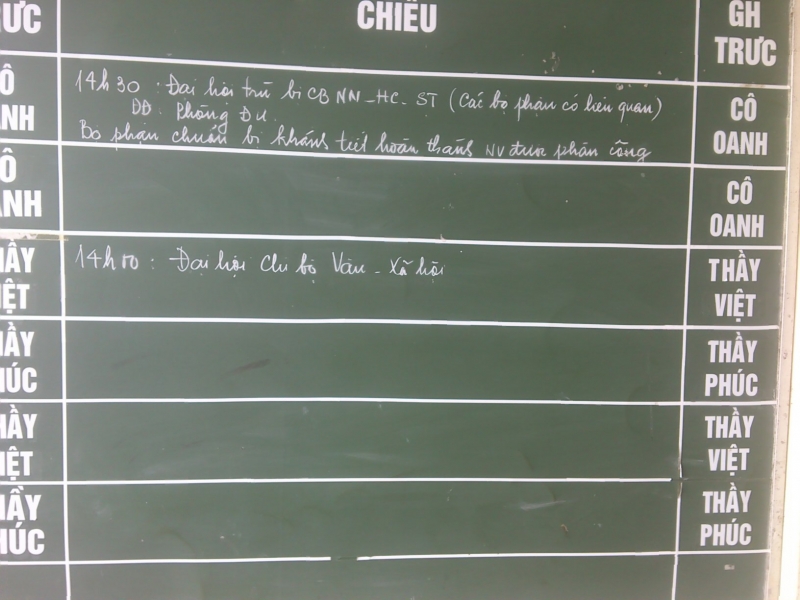 ƯC
CHIỀU
GH
TRƯC
Ô
ANH
14h30 : Đại hội trù bị CB NN - HC - ST (Các bộ phận có liên quan)
DĐ : Phòng
Bộ phận chuẩn bị khánh tiết hoàn thành NV được phân công
CÔ
OANH
Ô
ANH
CÔ
OANH
ẦY
IỆT
14h00 : Đại hội Chi bộ Văn - Xã hội
THẦY
VIỆT
ẦY
HÚC
THẦY
PHÚC
HẦY
IỆT
THẦY
VIỆT
HẦY
HÚC
THẦY
PHÚC